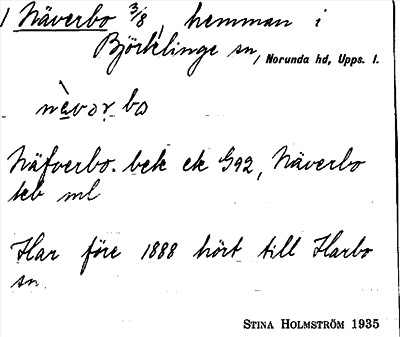 1 Näverbo 3/8, hemman i
Björklinge sn, Norunda hd, Upps. l.
nàvərbo
Näfverbo. bek ek G92, Näverbo
teb ml
Har före 1888 hört till Harbo
sn.
STINA HOLMSTRÖM 1935